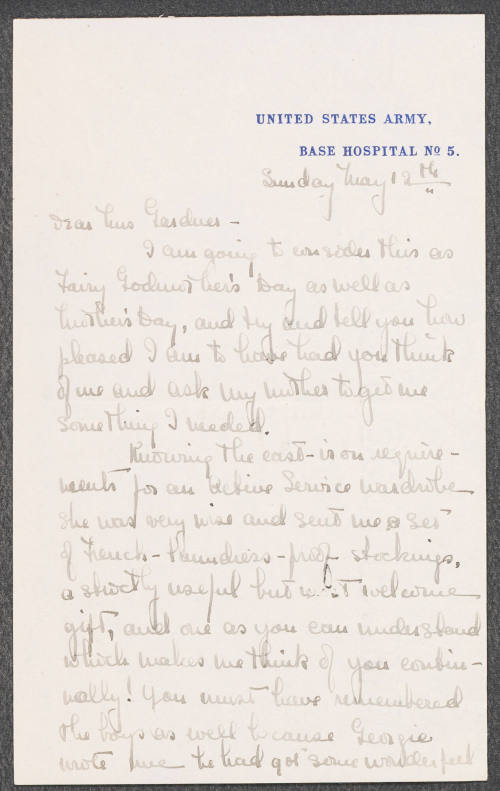 UNITED STATES ARMY,
BASE HOSPITAL No 5.
Sunday May 12th
Dear Mrs Gardner –
I am going to consider this as
Fairy Godmother's Day as well as
Mother's Day, and try and tell you how
pleased I am to have had you think
of me and ask my mother to get me
something I needed.
Knowing the cast-iron require-
ments for an Active Service wardrobe
she was very wise and sent me a set
of French-laundress-proof stockings,
a strictly useful but most welcome
gift, and one as you can understand
which makes me think of you contin-
ually! You must have remembered
the boys as well because Georgie
wrote me he had got some wonderful